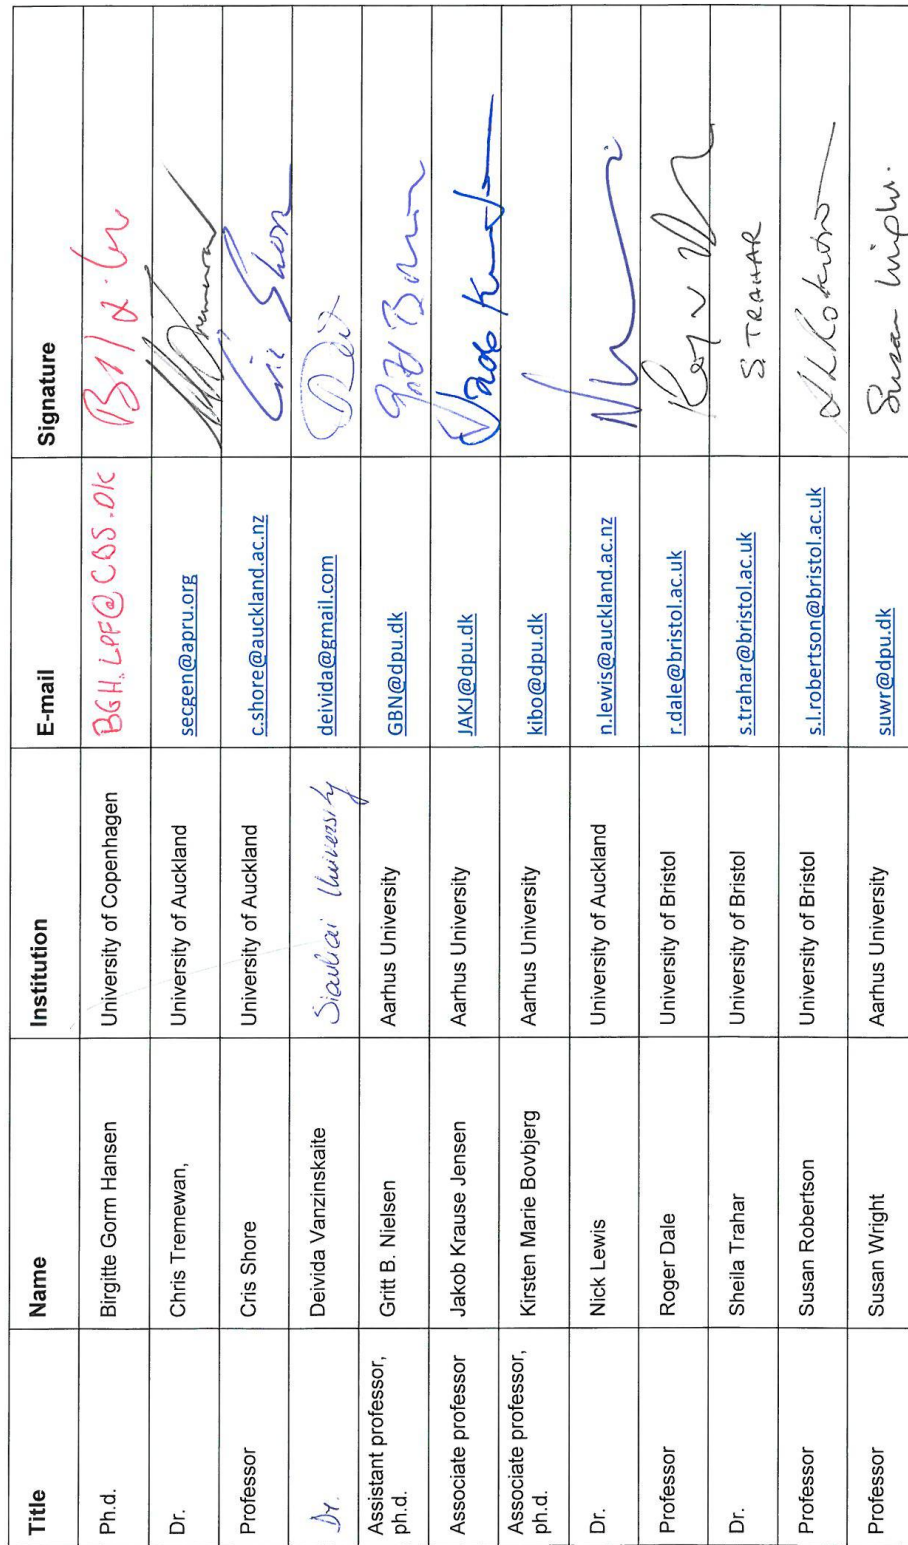 Title Name Institution E-mail Signature
Ph.d. Birgitte Gorm Hansen University of Copenhagen BGH.LPF@CBS.DK
Dr. Chris Tremewan, University of Auckland secgen@apru.org
Professor Cris Shore University of Auckland c.shore@auckland.ac.nz Cris Shore
Dr. Deivida Vanzinskaite Siauliai University deivida@gmail.com
Assistant professor, Gritt B. Nielsen Aarhus University GBN@dpu.dk
ph.d.
Associate professor Jakob Krause Jensen Aarhus University JAKJ@dpu.dk
Associate professor, Kirsten Marie Bovbjerg Aarhus University kibo@dpu.dk
ph.d.
Dr. Nick Lewis University of Auckland n.lewis@auckland.ac.nz
Professor Roger Dale University of Bristol r.dale@bristol.ac.uk
Dr. Sheila Trahar University of Bristol s.trahar@bristol.ac.uk S. TRAHAR
Professor Susan Robertson University of Bristol s.l.robertson@bristol.ac.uk
Professor Susan Wright Aarhus University suwr@dpu.dk Susan Wright.